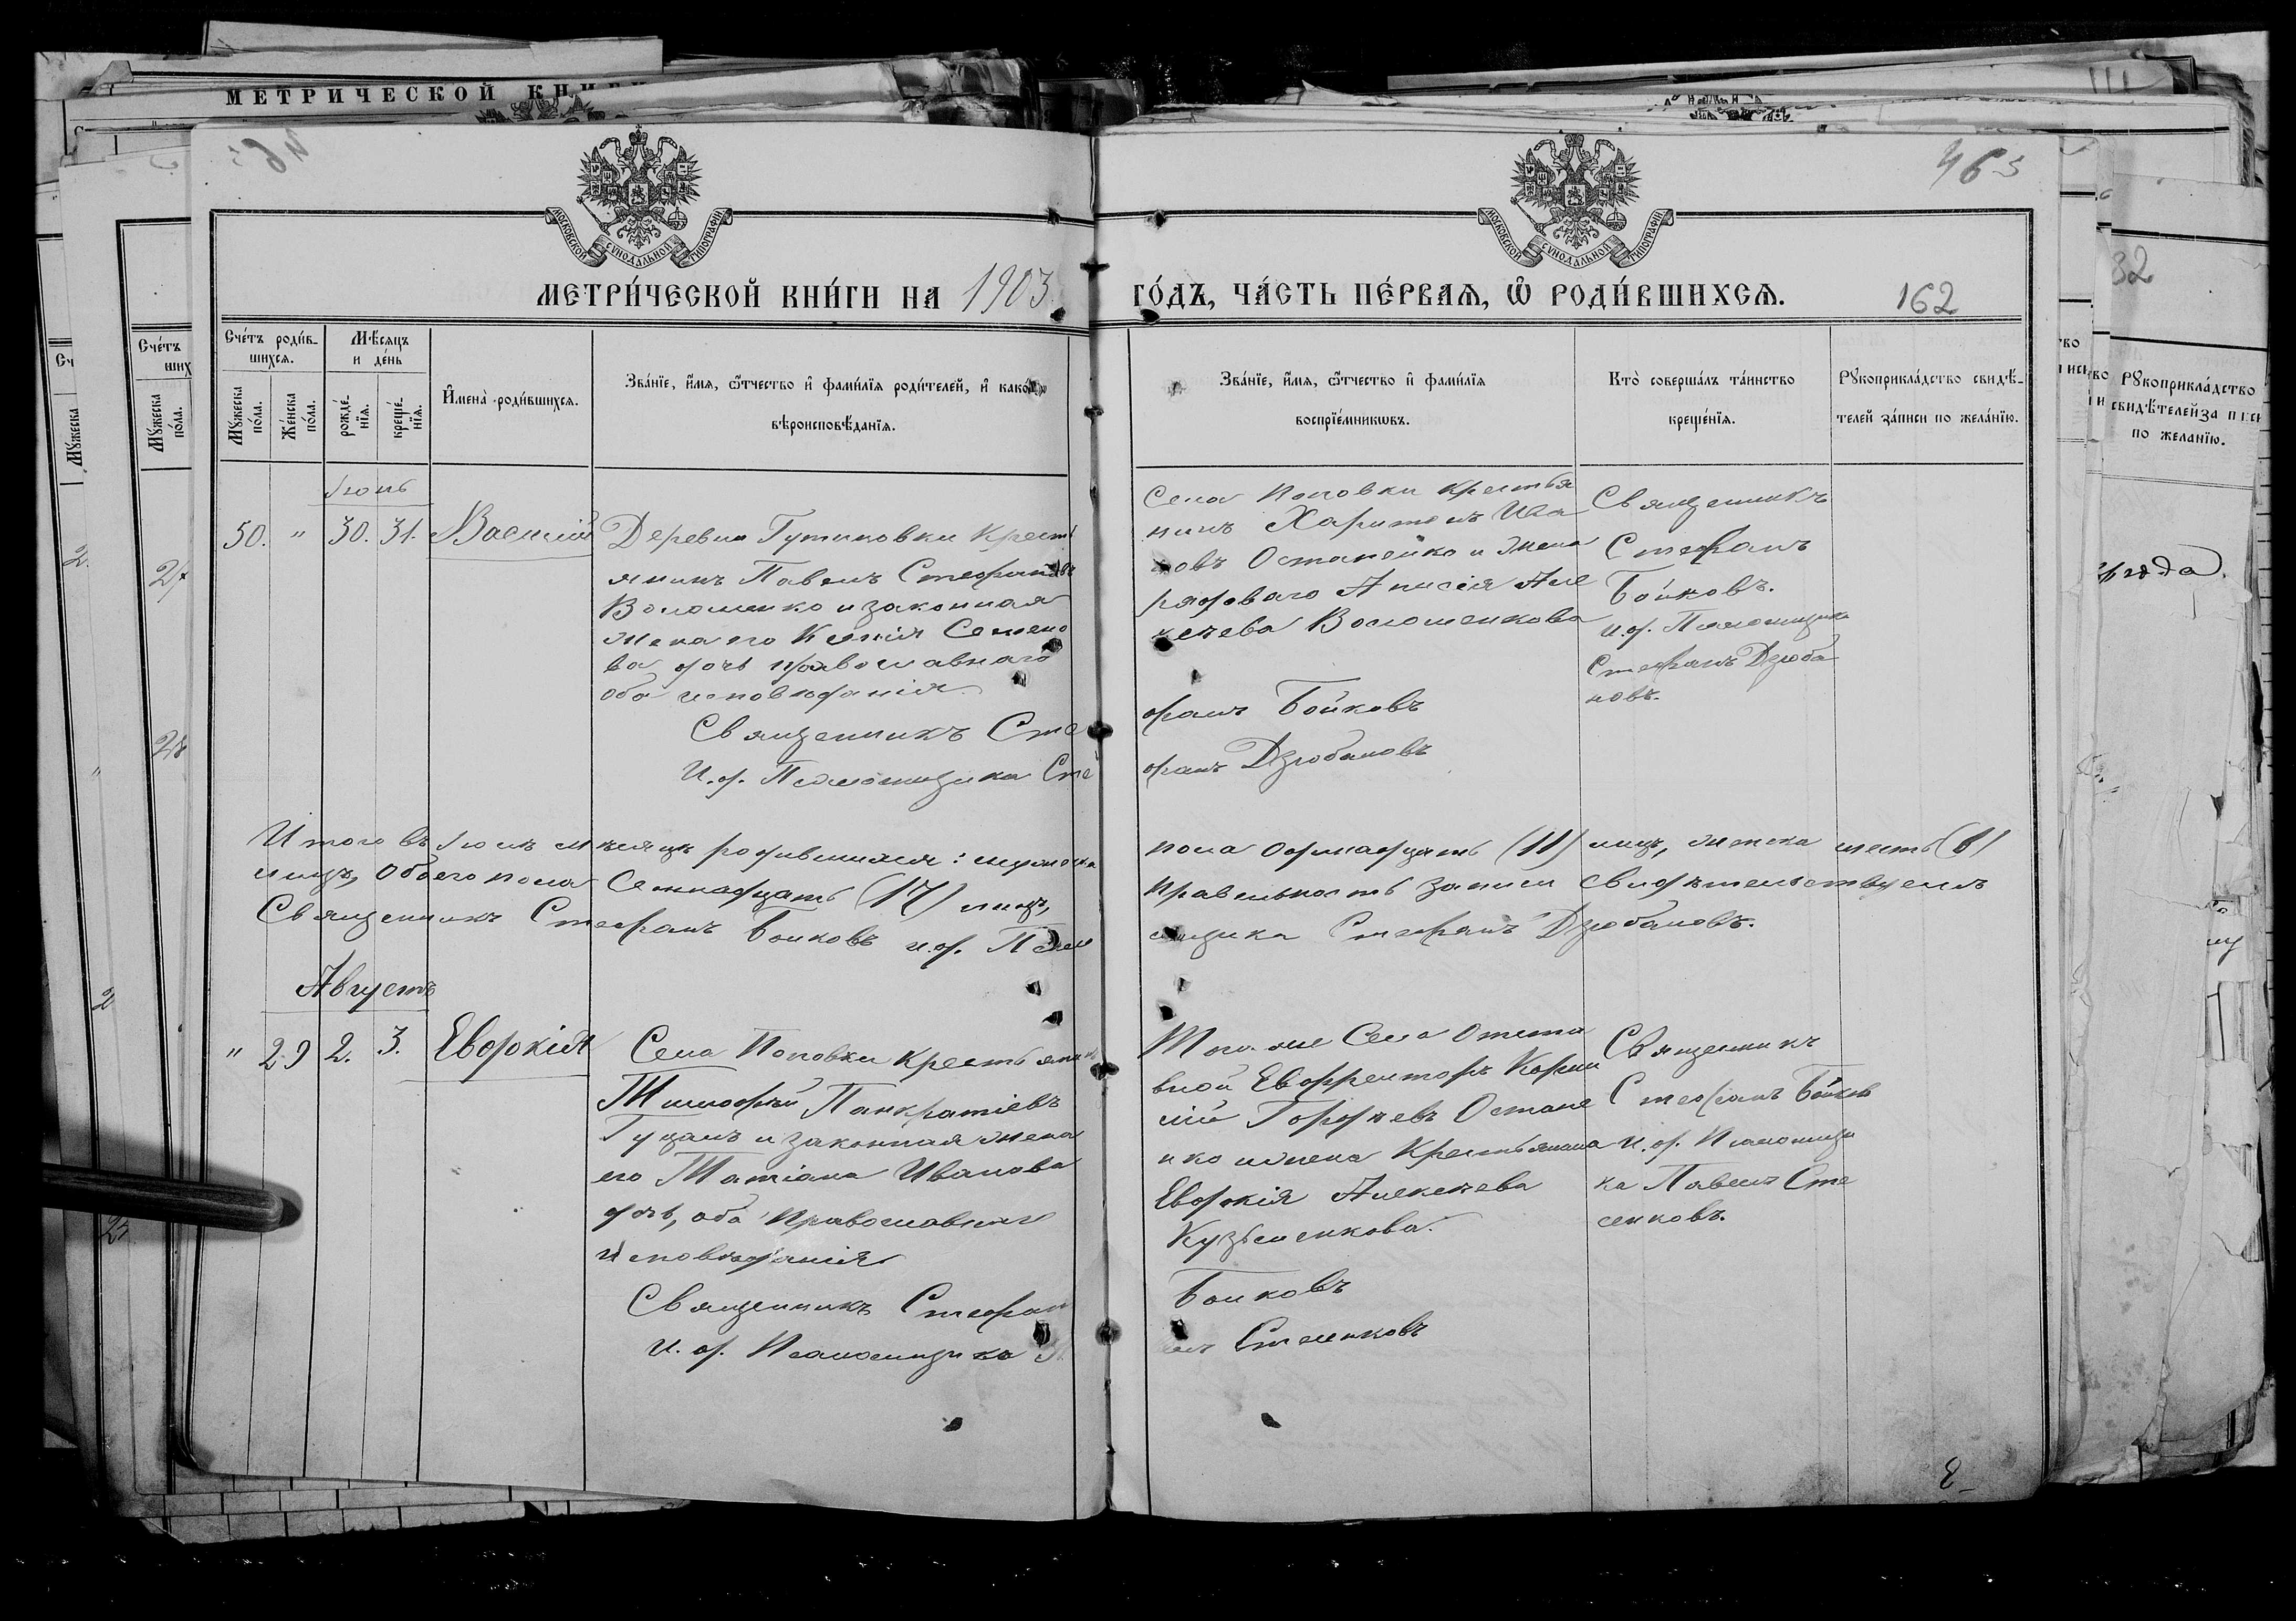 МЕТРИЧЕСКОЙ
46
463
МОСКОВСКОЙ СѴНОДАЛЬНОЙ ТИПОГРАФІИ
МОСКОВСКОЙ СѴНОДАЛЬНОЙ ТИПОГРАФІИ
МЕТРИ́ЧЕСКОЙ КНИ́ГИ НА 1903
ГО́ДЪ, ЧА́СТЬ ПЕ́РВАѦ, Ѽ РОДИ́ВШИХСѦ.
162
Сче́тъ роди́в-
шихсѧ.
Мѣ́сѧцъ
и де́нь
Мꙋ́жеска
по́ла.
Же́нска
по́ла.
рожде́-
нїѧ.
креще́-
нїѧ.
И҆мена̀ роди́вшихсѧ.
Зва́нїе, и҆́мѧ, ѻ҆́тчество и҆ фами́лїѧ роди́телей, и҆ како́гѡ
вѣроисповѣ́данїѧ.
Зва́нїе, и҆́мѧ, ѻ҆́тчество и҆ фами́лїѧ
воспрїе́мникѡвъ.
Кто̀ соверша́лъ та́инство
креще́нїѧ.
Рꙋкоприкла́дство свидѣ́-
телей за́писи по жела́нїю.
Іюль
50. " 30. 31. Василій
Деревни Гутиновки крестья
янинъ Павелъ Стефановъ
Волошенко и законная
жена его Ксенія Семено
ва оба православнаго
исповѣданія
Священникъ Сте
И. д. Псаломщика Сте
Села Поповки крестья
нинъ Харитонъ Ива
новъ Остапенко и жена
рядоваго Анисія Але
ксѣева Волошенкова
фанъ Бойковъ
фанъ Дзюбановъ
Священникъ
Стефанъ
Бойковъ.
и. д. Псаломщика
Стефанъ Дзюба
новъ.
Итого въ Іюлѣ мѣсяцѣ родившихся: мужеска
пола одинадцать (11) лицъ, женска шесть (6)
лицъ, обоего пола семнадцать (17) лицъ,
правильность записи свидѣтельствуемъ
Священникъ Стефанъ Бойковъ и. д. Псало
мщика Стефанъ Дзюбановъ.
Августъ
" 29 2. 3. Евдокія
Села Поповки крестьянинъ
Тимофей Панкратіевъ
Гуцанъ и законная жена
его Татіана Иванова
оба православнаго
исповѣданія
Священникъ Стефанъ
И. д. Псаломщика
Того же Села Отста
вной Ефрейторъ Корни
лій Гордѣевъ Остапе
нко и жена крестьянина
Евдокія Алексѣева
Кузьменкова.
Бойковъ
Стеценковъ
Священникъ
Стефанъ Бойковъ
и. д. Псаломщи
ка Павелъ Сте
ценковъ.